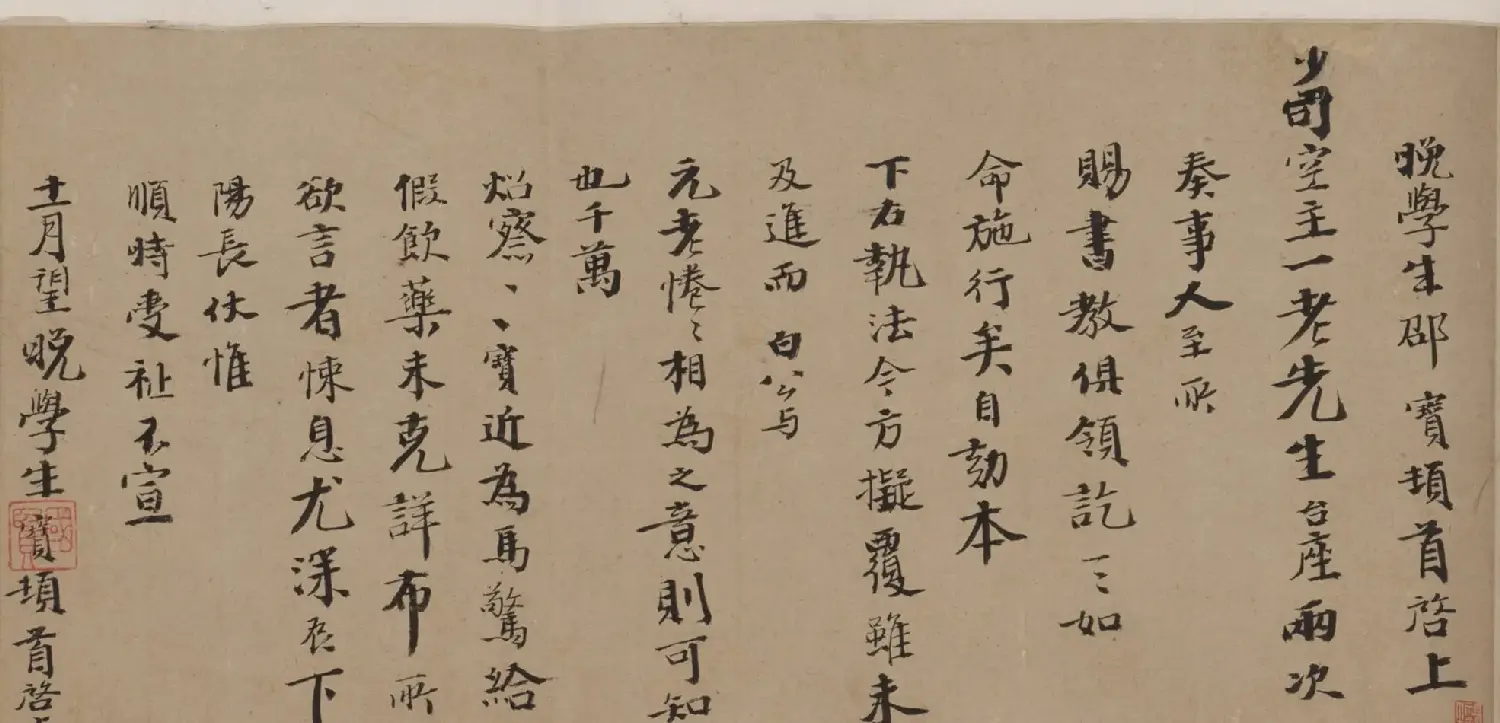 晚學生邵寶頓首啓上
少司空主一老先生台座兩次
奏事人至所
賜書教俱領訖一〻如
命施行矣自劾本
下右執法令方擬覆雖未
及進而白公与
元老惓〻相為之意則可知
也千萬
炤察〻〻寶近為馬驚給
假飲藥未克詳布所
欲言者悚息尤深辰下
陽長伏惟
順時受祉不宣
十一月望晚學生寶頓首啓上